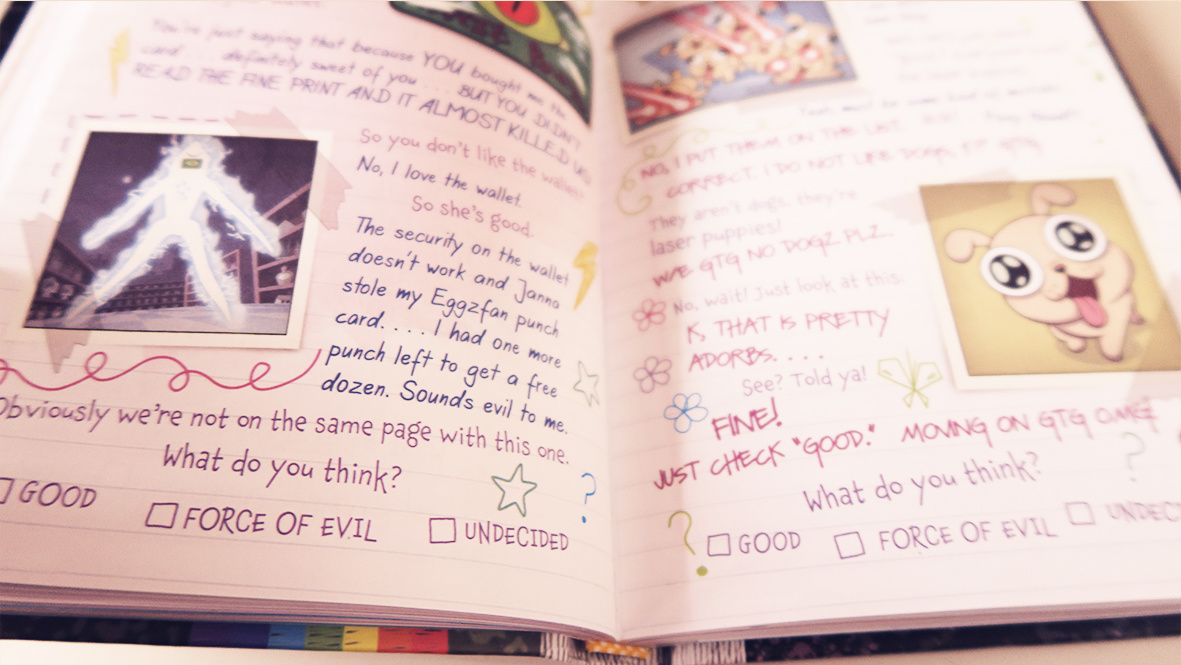 You're just saying that because YOU bought me the
card. . . . definitely sweet of you . . . . BUT YOU DIDN'T
READ THE FINE PRINT AND IT ALMOST KILLED
So you don't like the wallet?
No, I love the wallet.
So she's good.
The security on the wallet
doesn't work and Janna
stole my Eggzfan punch
card. . . . I had one more
punch left to get a free
dozen. Sounds evil to me.
Obviously we're not on the same page with this one.
What do you think?
GOOD
FORCE OF EVIL
UNDECIDED
NO, I PUT THEM ON THE LIST.
CORRECT. I DO NOT LIKE DOGS.
They aren't dogs, they're
laser puppies!
GTG NO DOGZ PLZ.
No, wait! Just look at this.
K, THAT IS PRETTY
ADORBS. . . .
See? Told ya!
FINE!
JUST CHECK "GOOD." MOVING ON GTG OMG!
What do you think?
GOOD
FORCE OF EVIL